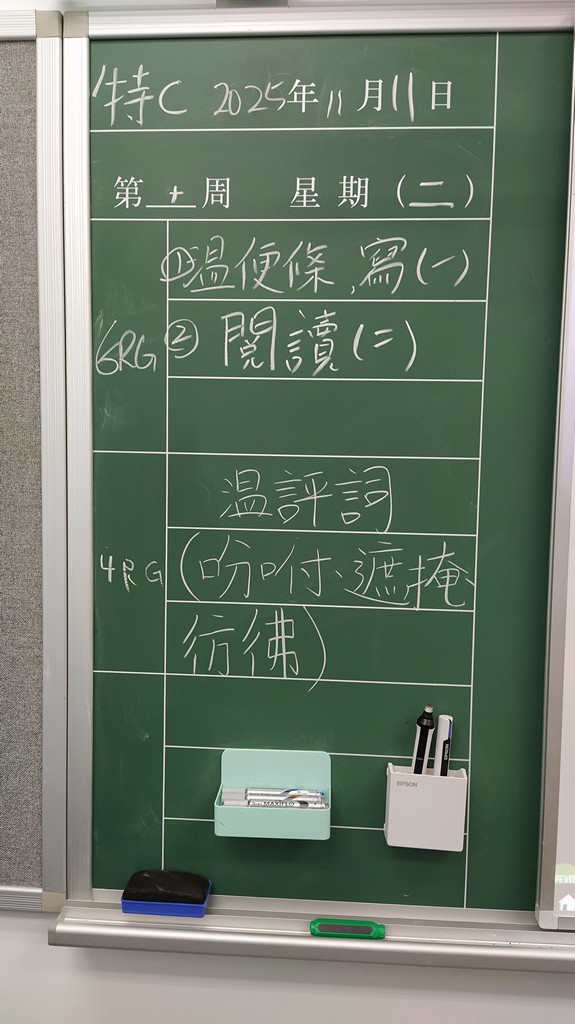 特C 2025年11月11日
第十周 星期(二)
①温便條,寫(一)
6RG ② 閱讀(二)
温評詞
4RG (吩咐、遮掩、
彷彿)
EPSON
MAXIFLO